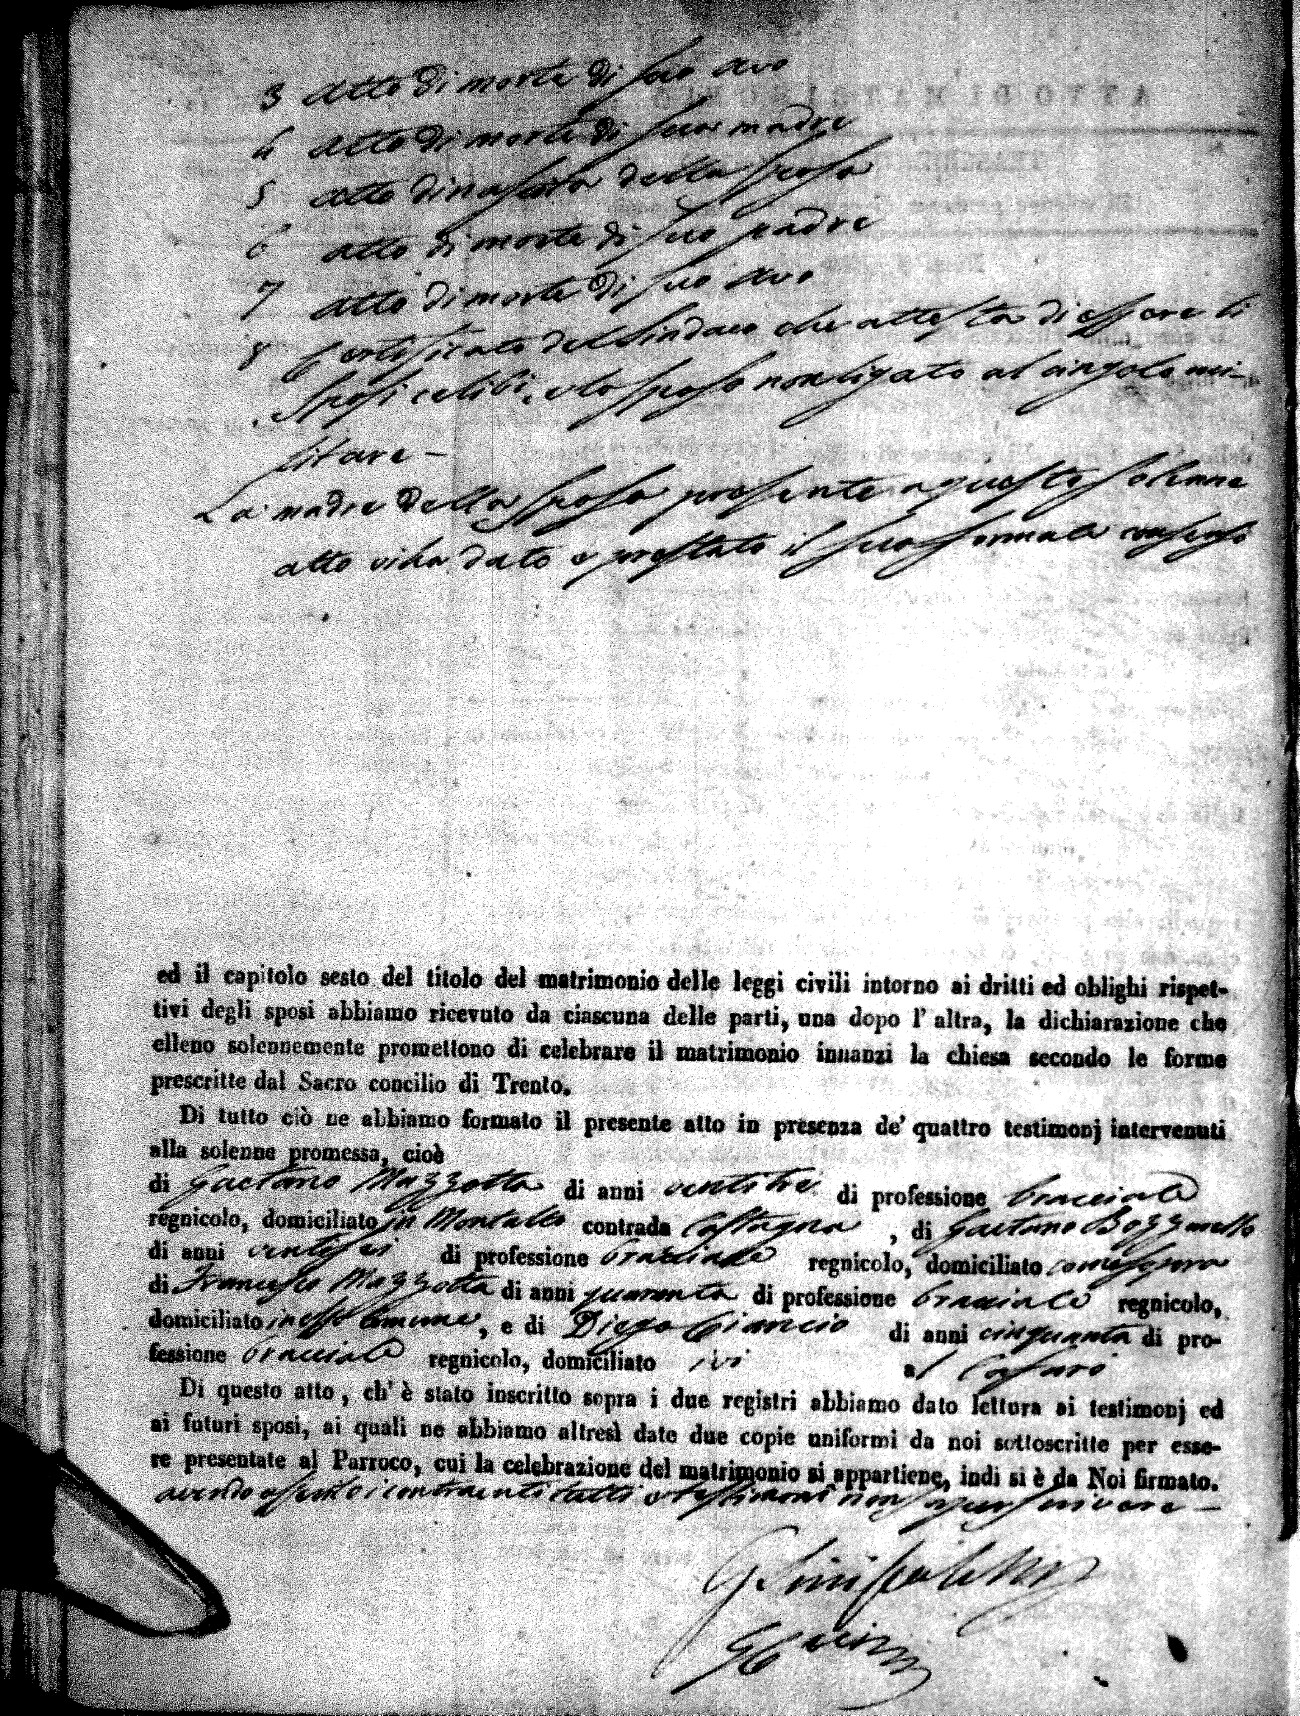 3 atto di morte di suo avo
4 atto di morte di sua madre
5 atto di nascita della sposa
6 atto di morte di suo padre
7 atto di morte di suo avo
8 Certificato del Sindaco che attesta di essere li
sposi celibi, e lo sposo non ligato al cingolo mi-
litare –
La madre della sposa presente a questo solenne
atto vi ha dato e prestato il suo formale consenso
ed il capitolo sesto del titolo del matrimonio delle leggi civili intorno ai dritti ed oblighi rispet-
tivi degli sposi abbiamo ricevuto da ciascuna delle parti, una dopo l' altra, la dichiarazione che
elleno solennemente promettono di celebrare il matrimonio innanzi la chiesa secondo le forme
prescritte dal Sacro concilio di Trento.
Di tutto ciò ne abbiamo formato il presente atto in presenza de' quattro testimonj intervenuti
alla solenne promessa, cioè
di Gaetano Mazzotta di anni ventitre di professione bracciale
regnicolo, domiciliato in Montalto contrada Castagna, di Gaetano
di anni ventisei di professione bracciale regnicolo, domiciliato come sopra
di Francesco Mazzotta di anni quaranta di professione bracciale regnicolo,
domiciliato in esso Comune, e di Diego Ciancio di anni cinquanta di pro-
fessione bracciale regnicolo, domiciliato ivi al
Di questo atto, ch' è stato inscritto sopra i due registri abbiamo dato lettura ai testimonj ed
ai futuri sposi, ai quali ne abbiamo altresì date due copie uniformi da noi sottoscritte per esse-
re presentate al Parroco, cui la celebrazione del matrimonio si appartiene, indi si è da Noi firmato.
avendo asserito i contraenti tutti e testimoni non saper scrivere –